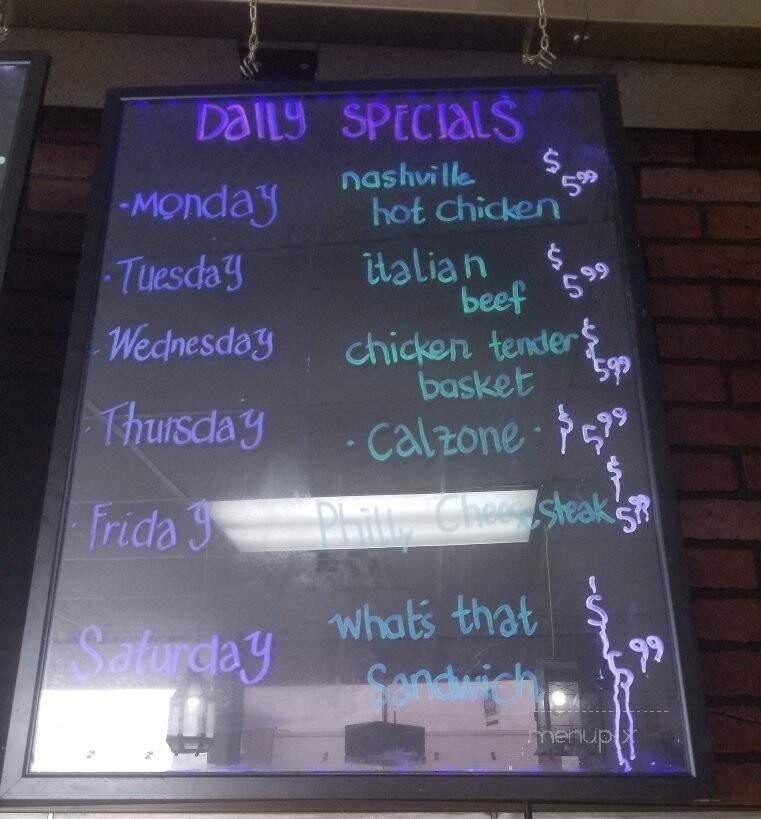 Daily Specials
·Monday nashville hot chicken $5.99
·Tuesday italian beef $5.99
·Wednesday chicken tender basket $5.99
·Thursday ·Calzone· $5.99
·Friday Philly Cheesesteak $5.99
Saturday what's that Sandwich $ .99
menupix